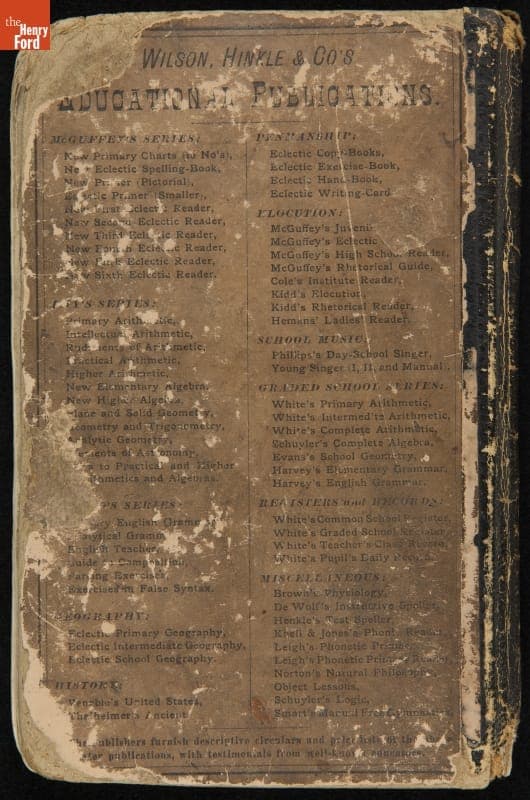 the Henry Ford
WILSON, HINKLE & CO'S
EDUCATIONAL PUBLICATIONS.
McGUFFEY'S SERIES:
New Primary Charts (10 No's),
New Eclectic Spelling-Book,
New Primer (Pictorial),
Eclectic Primer (Smaller),
New First Eclectic Reader,
New Second Eclectic Reader,
New Third Eclectic Reader,
New Fourth Eclectic Reader,
New Fifth Eclectic Reader,
New Sixth Eclectic Reader.
SERIES:
Primary Arithmetic,
Intellectual Arithmetic,
Rudiments of Arithmetic,
Practical Arithmetic,
Higher Arithmetic,
New Elementary Algebra,
New Higher Algebra,
Plane and Solid Geometry,
Geometry and Trigonometry,
Analytic Geometry,
Elements of Astronomy,
to Practical and Higher
and Algebras.
SERIES:
English Grammar
Analytical Grammar
English Teacher,
Guide to Composition,
Parsing Exercises,
Exercises in False Syntax.
GEOGRAPHY:
Eclectic Primary Geography,
Eclectic Intermediate Geography,
Eclectic School Geography.
HISTORY:
Venable's United States,
Thalheimer's Ancient
PENMANSHIP:
Eclectic Copy-Books,
Eclectic Exercise-Book,
Eclectic Hand-Book,
Eclectic Writing-Card
ELOCUTION:
McGuffey's Juvenile
McGuffey's Eclectic
McGuffey's High School Reader,
McGuffey's Rhetorical Guide,
Cole's Institute Reader,
Kidd's Elocution,
Kidd's Rhetorical Reader,
Hemans' Ladies' Reader.
SCHOOL MUSIC:
Phillips's Day-School Singer,
Young Singer (I, II, and Manual).
GRADED SCHOOL SERIES:
White's Primary Arithmetic,
White's Intermed'te Arithmetic,
White's Complete Arithmetic,
Schuyler's Complete Algebra,
Evans's School Geometry,
Harvey's Elementary Grammar,
Harvey's English Grammar.
REGISTERS and RECORDS:
White's Common School Register,
White's Graded School Register
White's Teacher's Class Record,
White's Pupil's Daily Record.
MISCELLANEOUS:
Brown's Physiology,
De Wolf's Instructive Speller,
Henkle's Test Speller,
Knell & Jones's Phon. Reader,
Leigh's Phonetic Primer,
Leigh's Phonetic Primary Reader,
Norton's Natural Philosophy,
Object Lessons,
Schuyler's Logic,
Smart's Manual Free Gymnastics
The publishers furnish descriptive circulars and price lists of the
publications, with testimonials from well-known educators.